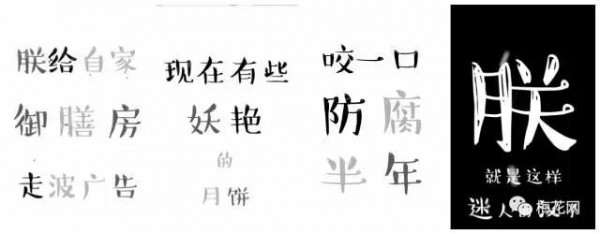 朕给自家
御膳房
走波广告
现在有些
妖艳
的
月饼
咬一口
防腐
半年
朕
就是这样
迷人的
梅花网